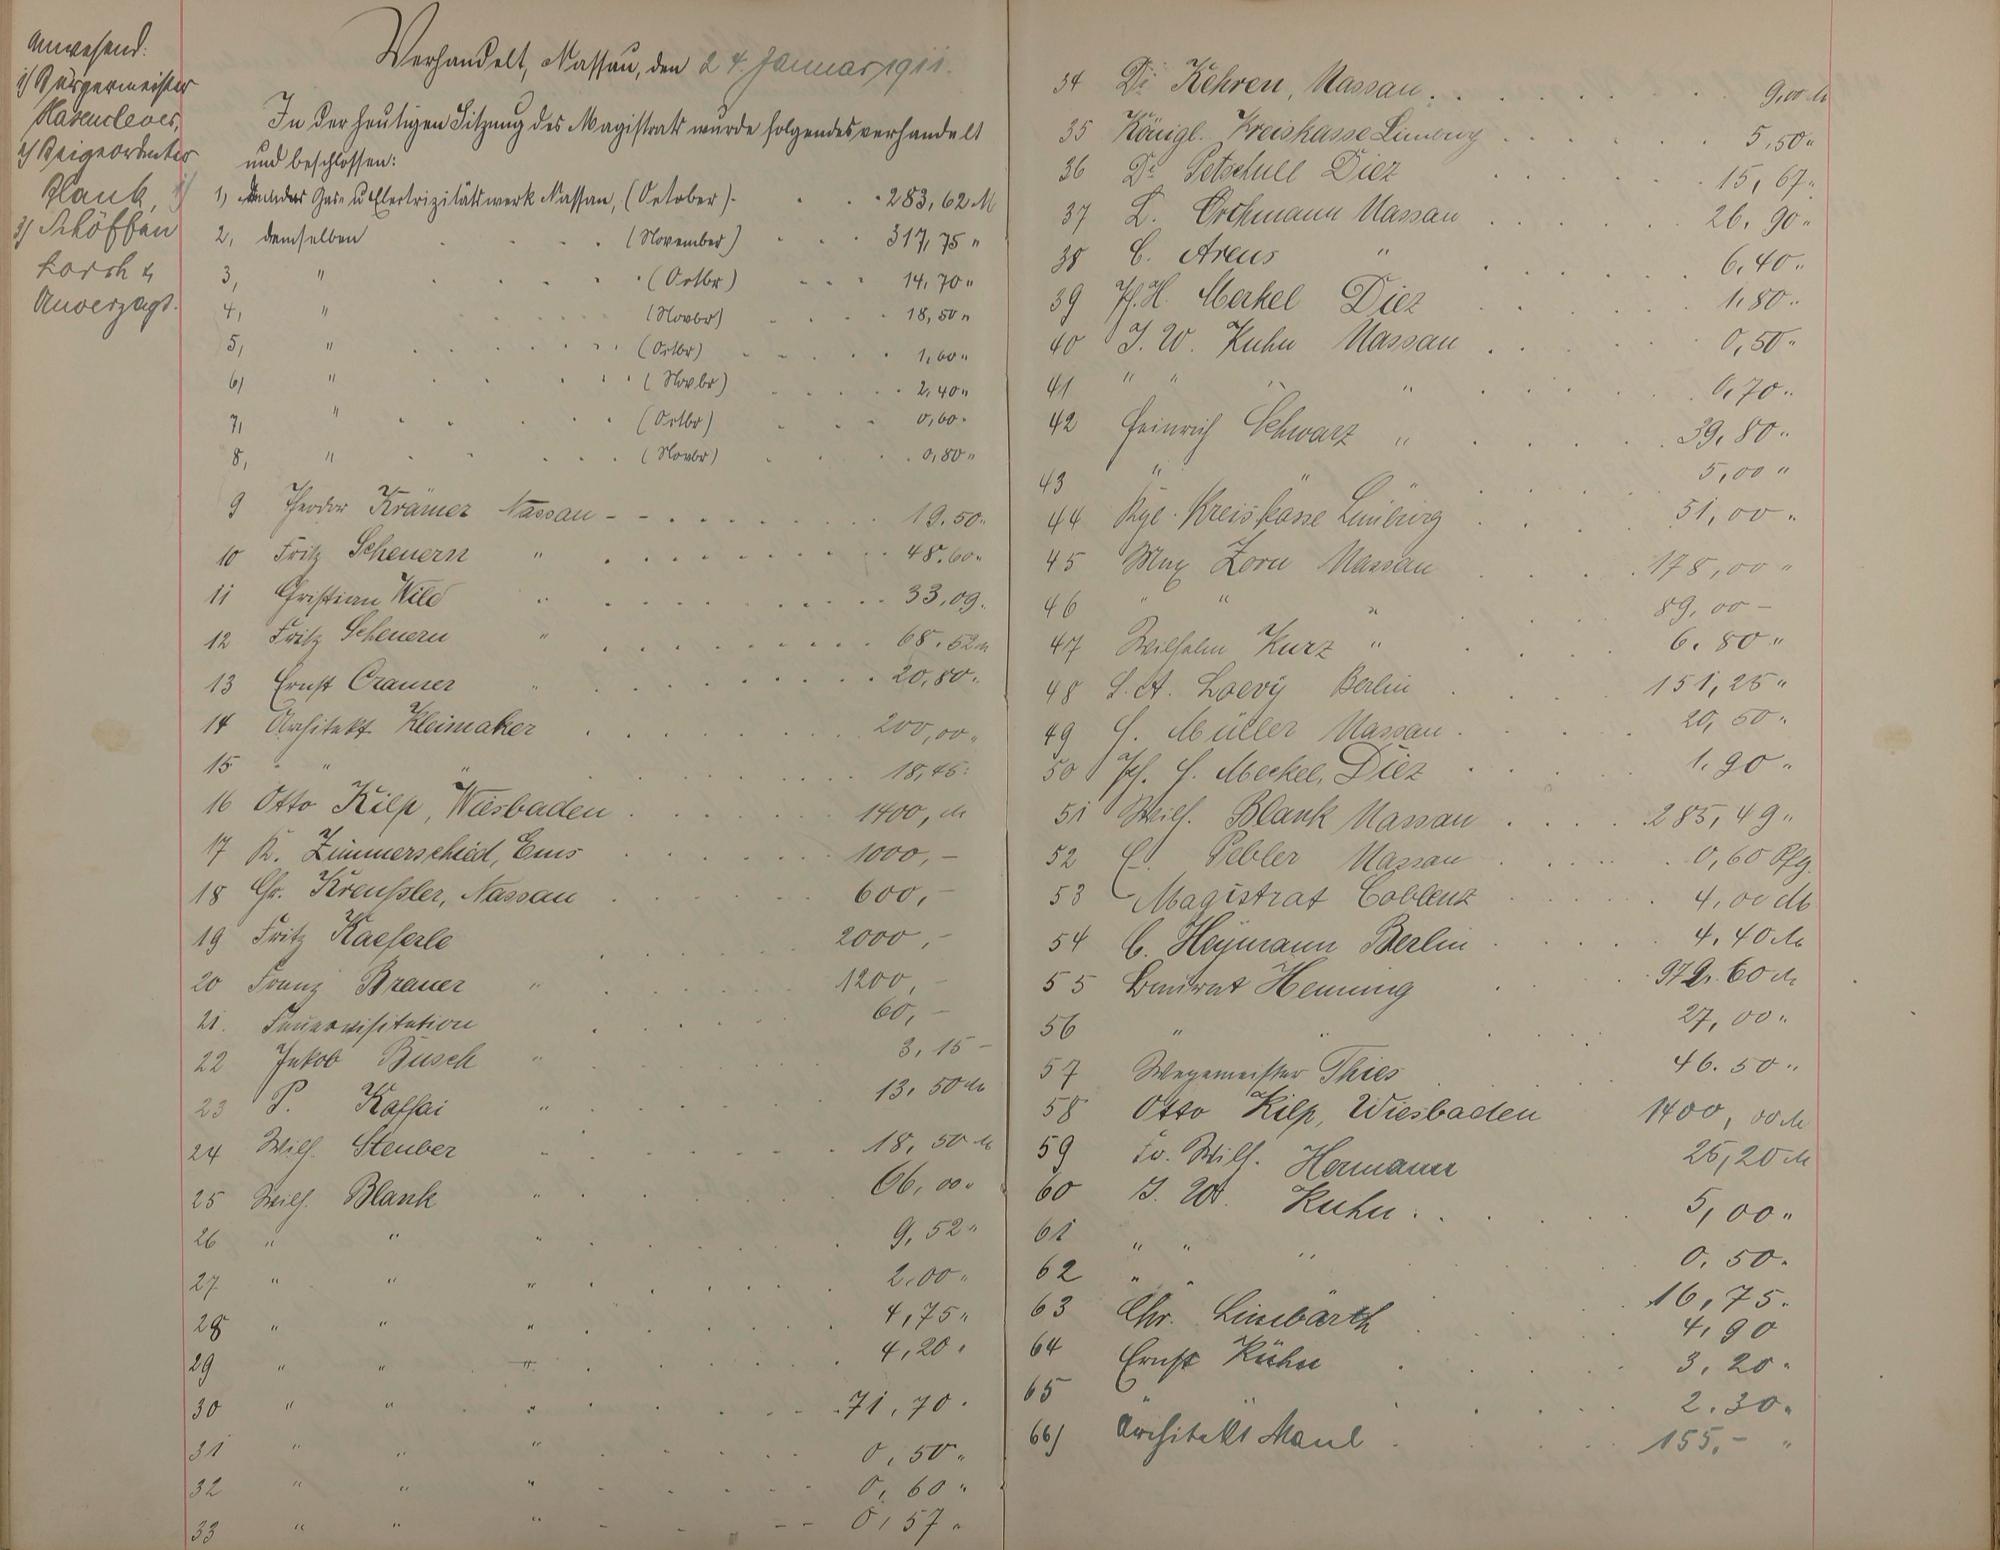 Anwesend:
1) Bürgermeister
Hasenclever,
2) Beigeordneter
Blank,
3) Schöffen
Lorch &
Unverzagt.
Verhandelt, Nassau, den 24. Januar 1911.
In der heutigen Sitzung des Magistrats wurde folgendes verhandelt
und beschlossen:
1, Gas- u Electrizitätswerk Nassau, (October) 283,62 M
2, demselben (November) 317,75 "
3, " (Octbr) 14,70 "
4, " (Novbr) 18,50 "
5, " (Octbr) 1,60 "
6, " (Novbr) 2,40 "
7, " (Octbr) 0,60 "
8, " (Novbr) 0,80 "
9 Theodor Krämer Nassau 19.50 "
10 Fritz Scheuern " 48.60 "
11 Christian Wild " 33,09 "
12 Fritz Scheuern " 68.52 "
13 Ernst Cramer " 20,80 "
14 Architekt Kleimaker 200,00 "
15 " " 18,45 "
16 Otto Kilp, Wiesbaden 1400, M
17 K. Zimmerschied, Ems 1000, –
18 Chr. Kreußler, Nassau 600, –
19 Fritz Kaeferle 2000, –
20 Franz Brauer " 1200, –
21. Feuervisitation 60, –
22 Jakob Busch " 3,15 –
23 P. Kaffai " 13,50 M
24 Wilh. Steuber " 18,50 M
25 Wilh. Blank " 66,00 "
26 " " " 9,52 "
27 " " " 2,00 "
28 " " " 4,75 "
29 " " " 4,20 "
30 " " " 71,70 "
31 " " " 0,50 "
32 " " " 0,60 "
33 " " " 0,57 "
34 Dr Kehren, Nassau 9,00 M
35 Königl. Kreiskasse Limburg 5,50 "
36 Dr Petschull Diez 15,67 "
37 L. Orthmann Nassau 26.90 "
38 C. Arens " 6,40 "
39 Ph. H. Meckel Diez 1,80 "
40 J. W. Kuhn Nassau 0,50 "
41 " " " " 0,70 "
42 Heinrich Schwarz " 39,80 "
43 " " 5,00 "
44 Kgl. Kreiskasse Limburg 51,00 "
45 Max Zorn Nassau 178,00 "
46 " " " 89,00 –
47 Wilhelm Kurz " 6.80 "
48 S. A. Loevy Berlin 151,25 "
49 H. Müller Nassau 20,50 "
50 Ph. H. Meckel, Diez 1.90 "
51 Wilh. Blank Nassau 285,49 "
52 Pebler Nassau 0,60 Pfg.
53 Magistrat Coblenz 4,00 M
54 C. Heymann Berlin 4,40 M
55 Baurat Henning 60 M
56 " " 27,00 "
57 Wegemeister Thies 46.50 "
58 Otto Kilp, Wiesbaden 1400,00 M
59 Fr. Wilh. Hermann 25,20 M
60 J. W. Kuhn 5,00 "
61 " " " 0,50 "
62 " " 16,75 "
63 Chr. Limbarth 4,90
64 Ernst Kühn 3,20 "
65 " " 2.30 "
66) Architekt Maul 155,– "